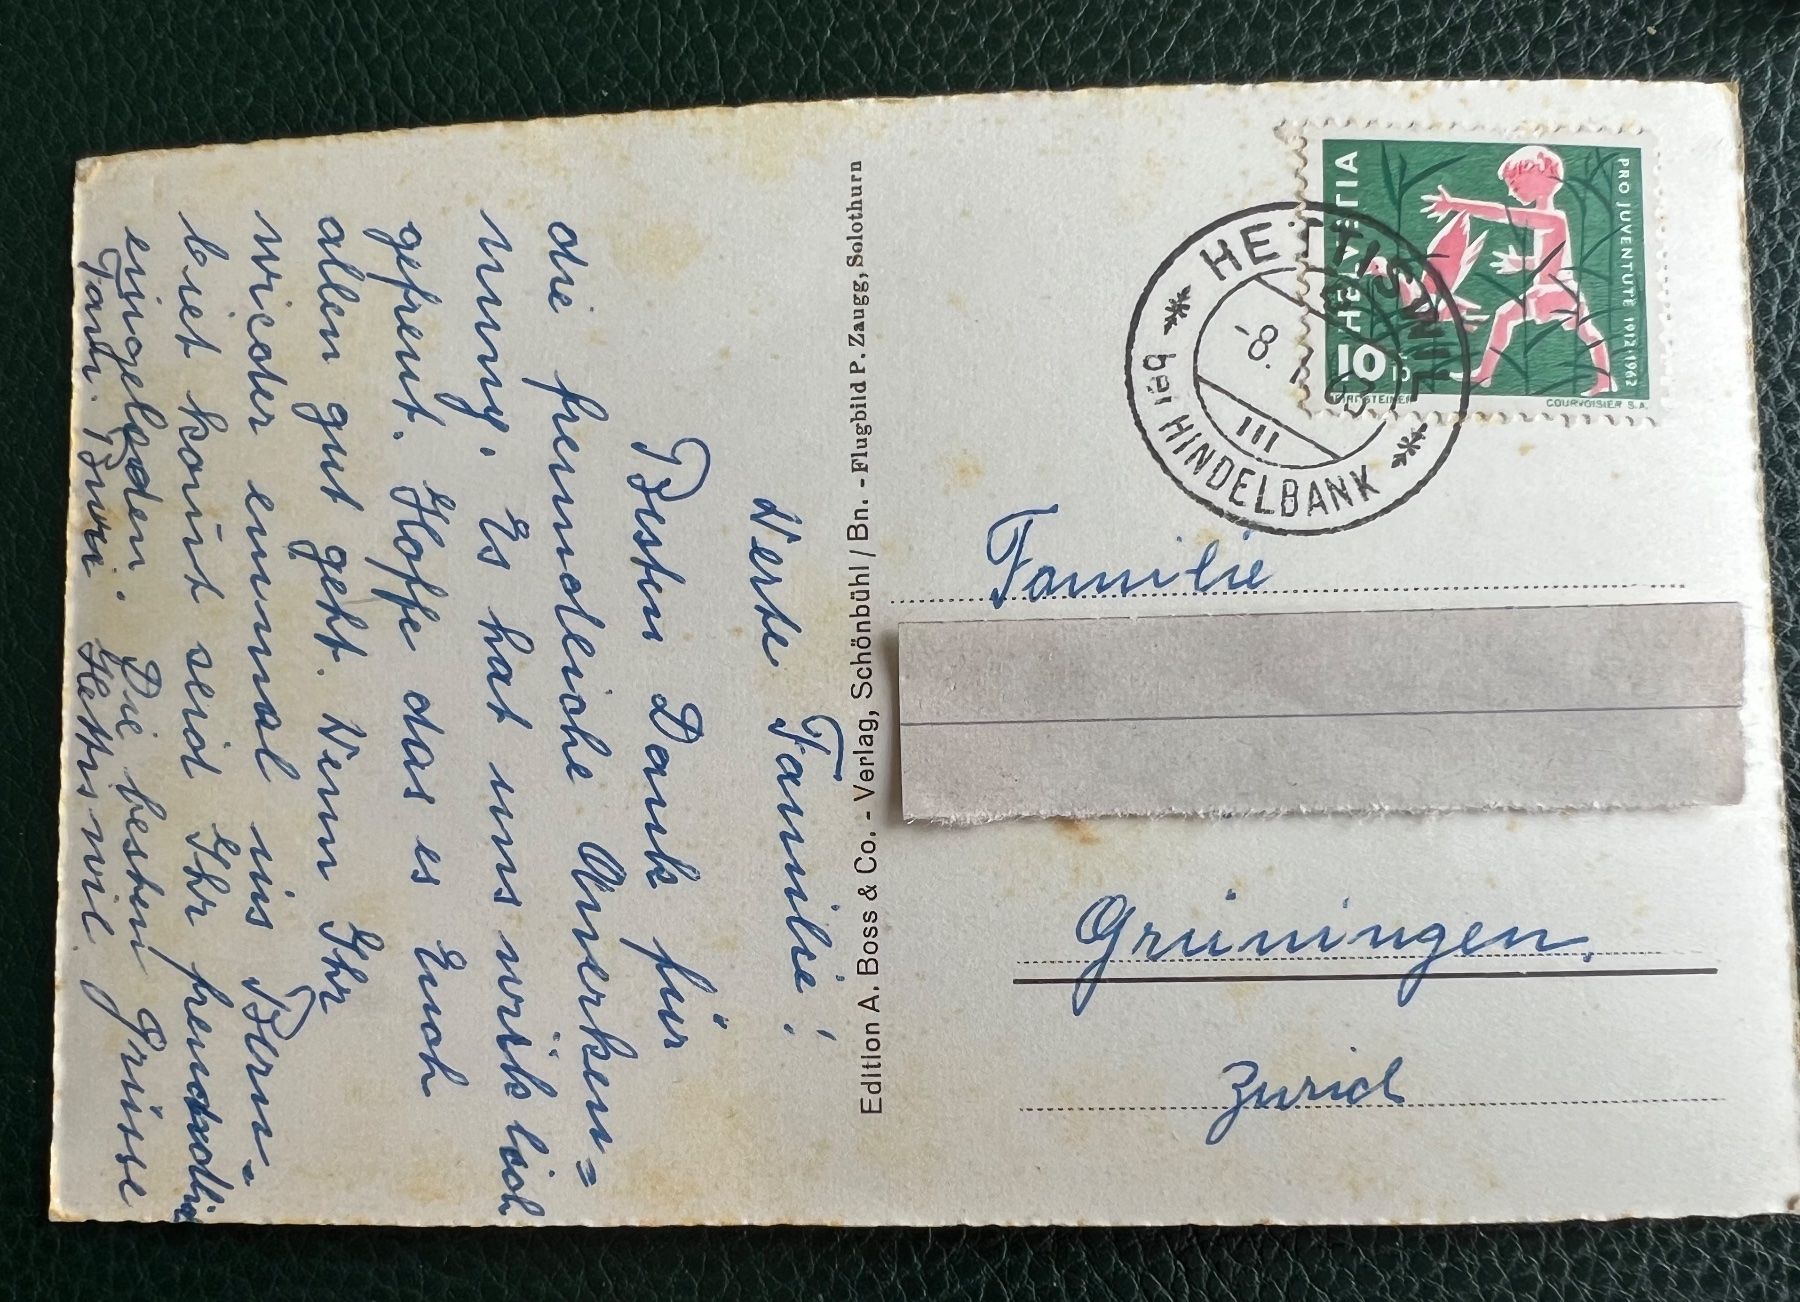 Werte Familie!
Besten Dank für
die freundliche Anerken=
nung. Es hat uns wirklich
gefreut. Hoffe das es Euch
allen gut geht. Wenn Ihr
wieder einmal ins Bern=
biet komt seid Ihr freundlich
eingeladen. Die besten Grüsse
Fam. Burri Hettiswil.
Edition A. Boss & Co. - Verlag, Schönbühl / Bn. - Flugbild P. Zaugg, Solothurn
HELVETIA
10
PRO JUVENTUTE 1912·1962
COURVOISIER S.A.
HETTISWIL
bei HINDELBANK
-8.
III
Familie
Grüningen.
Zürich